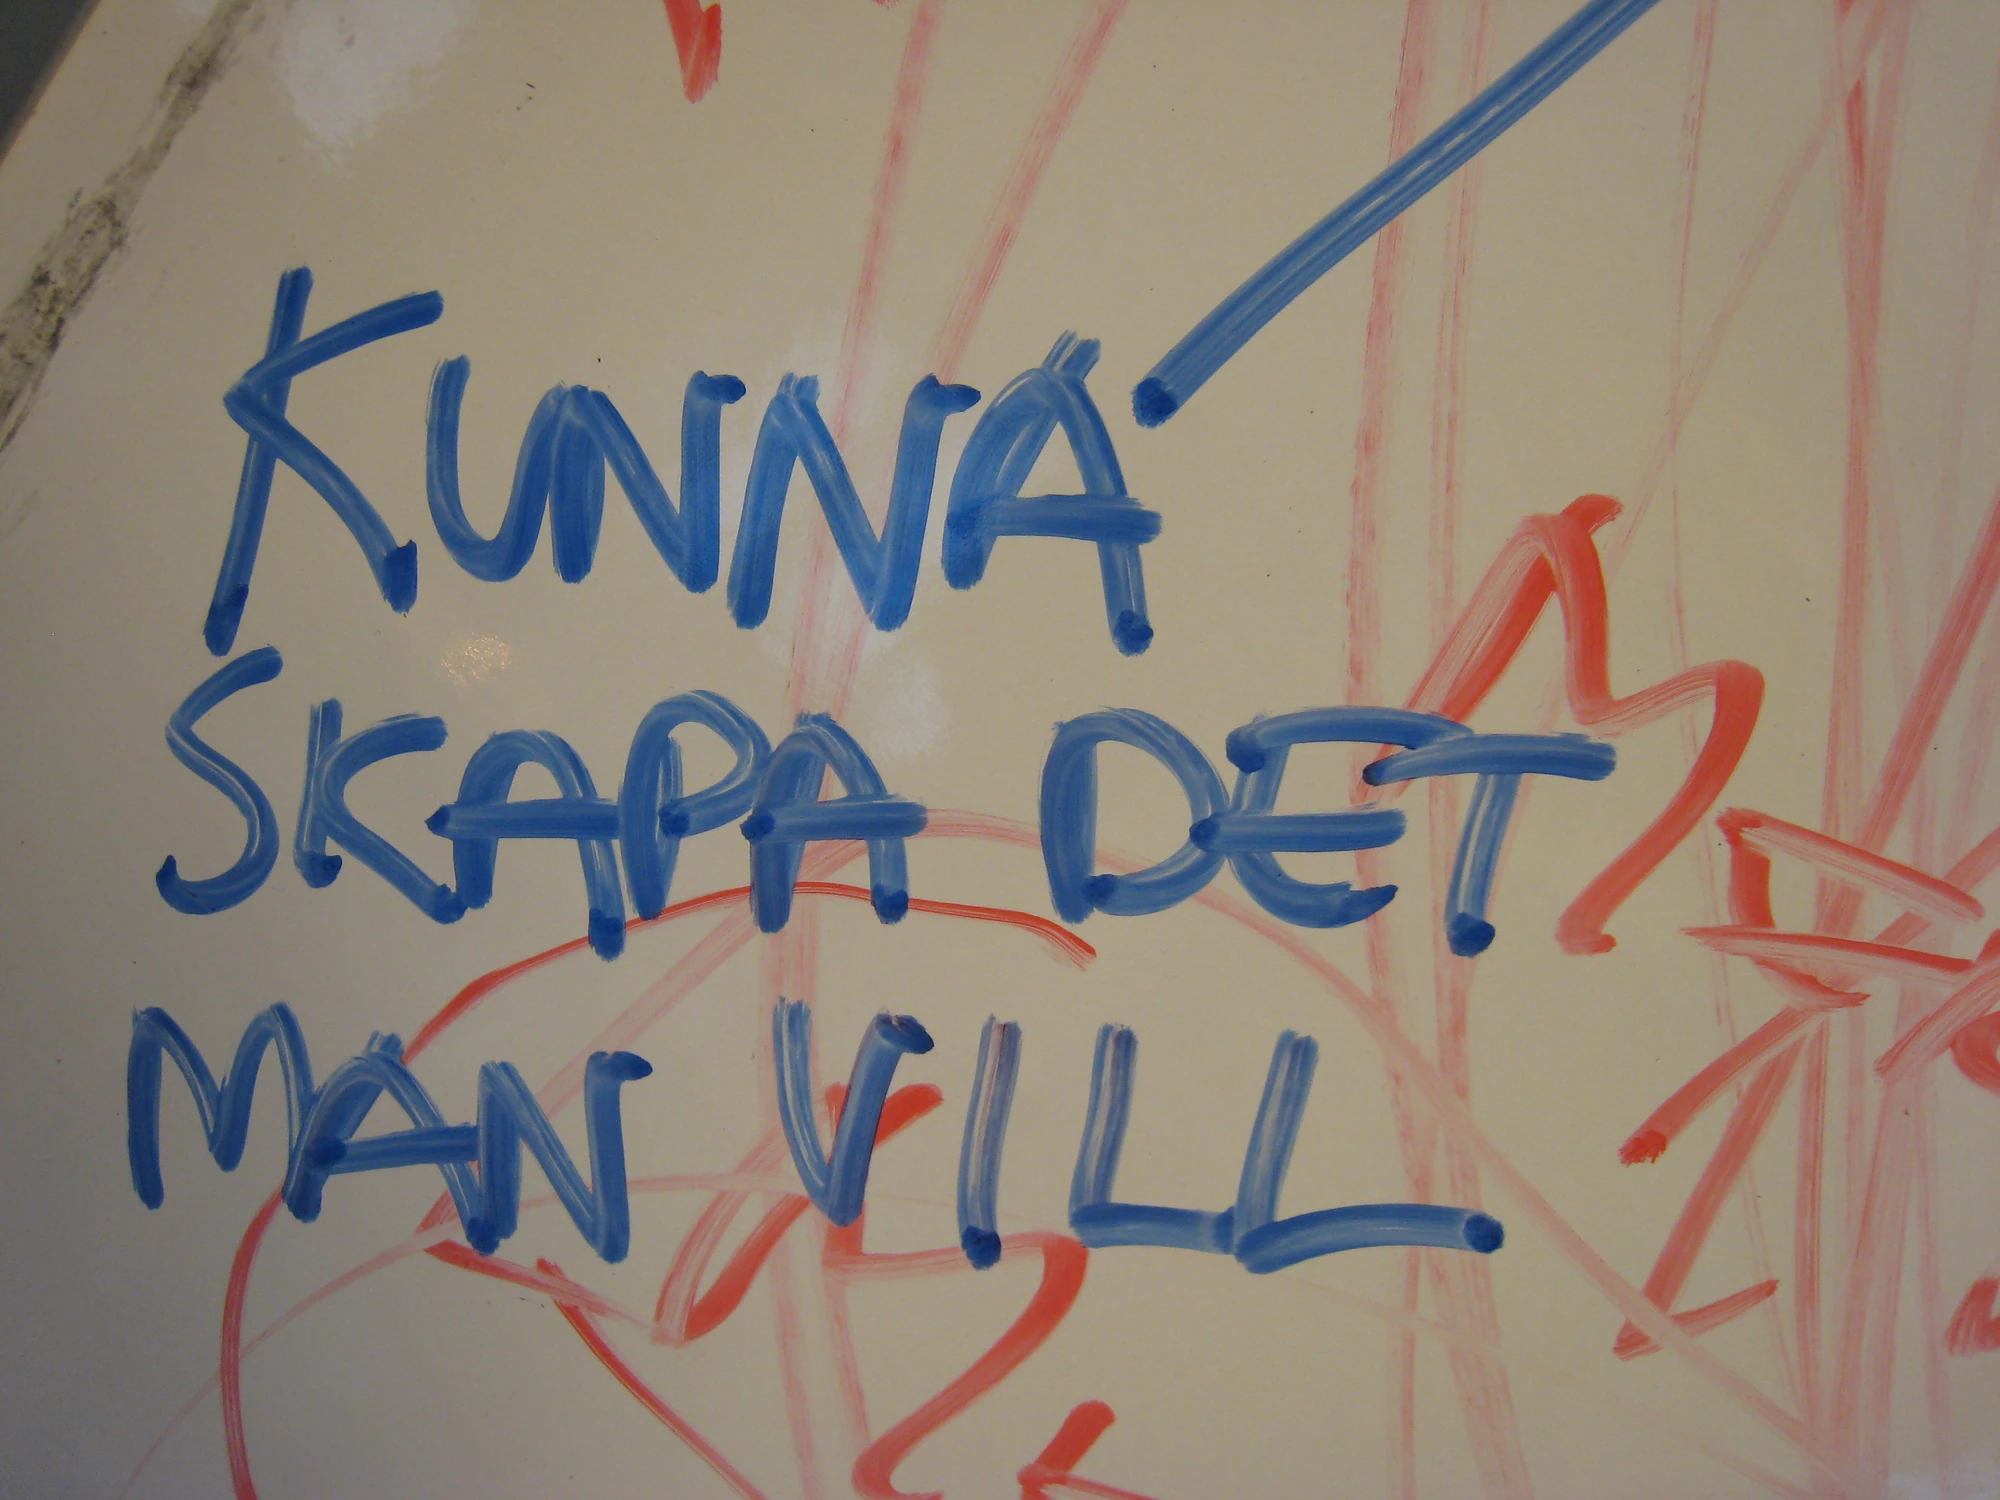 KUNNA
SKAPA DET
MAN VILL